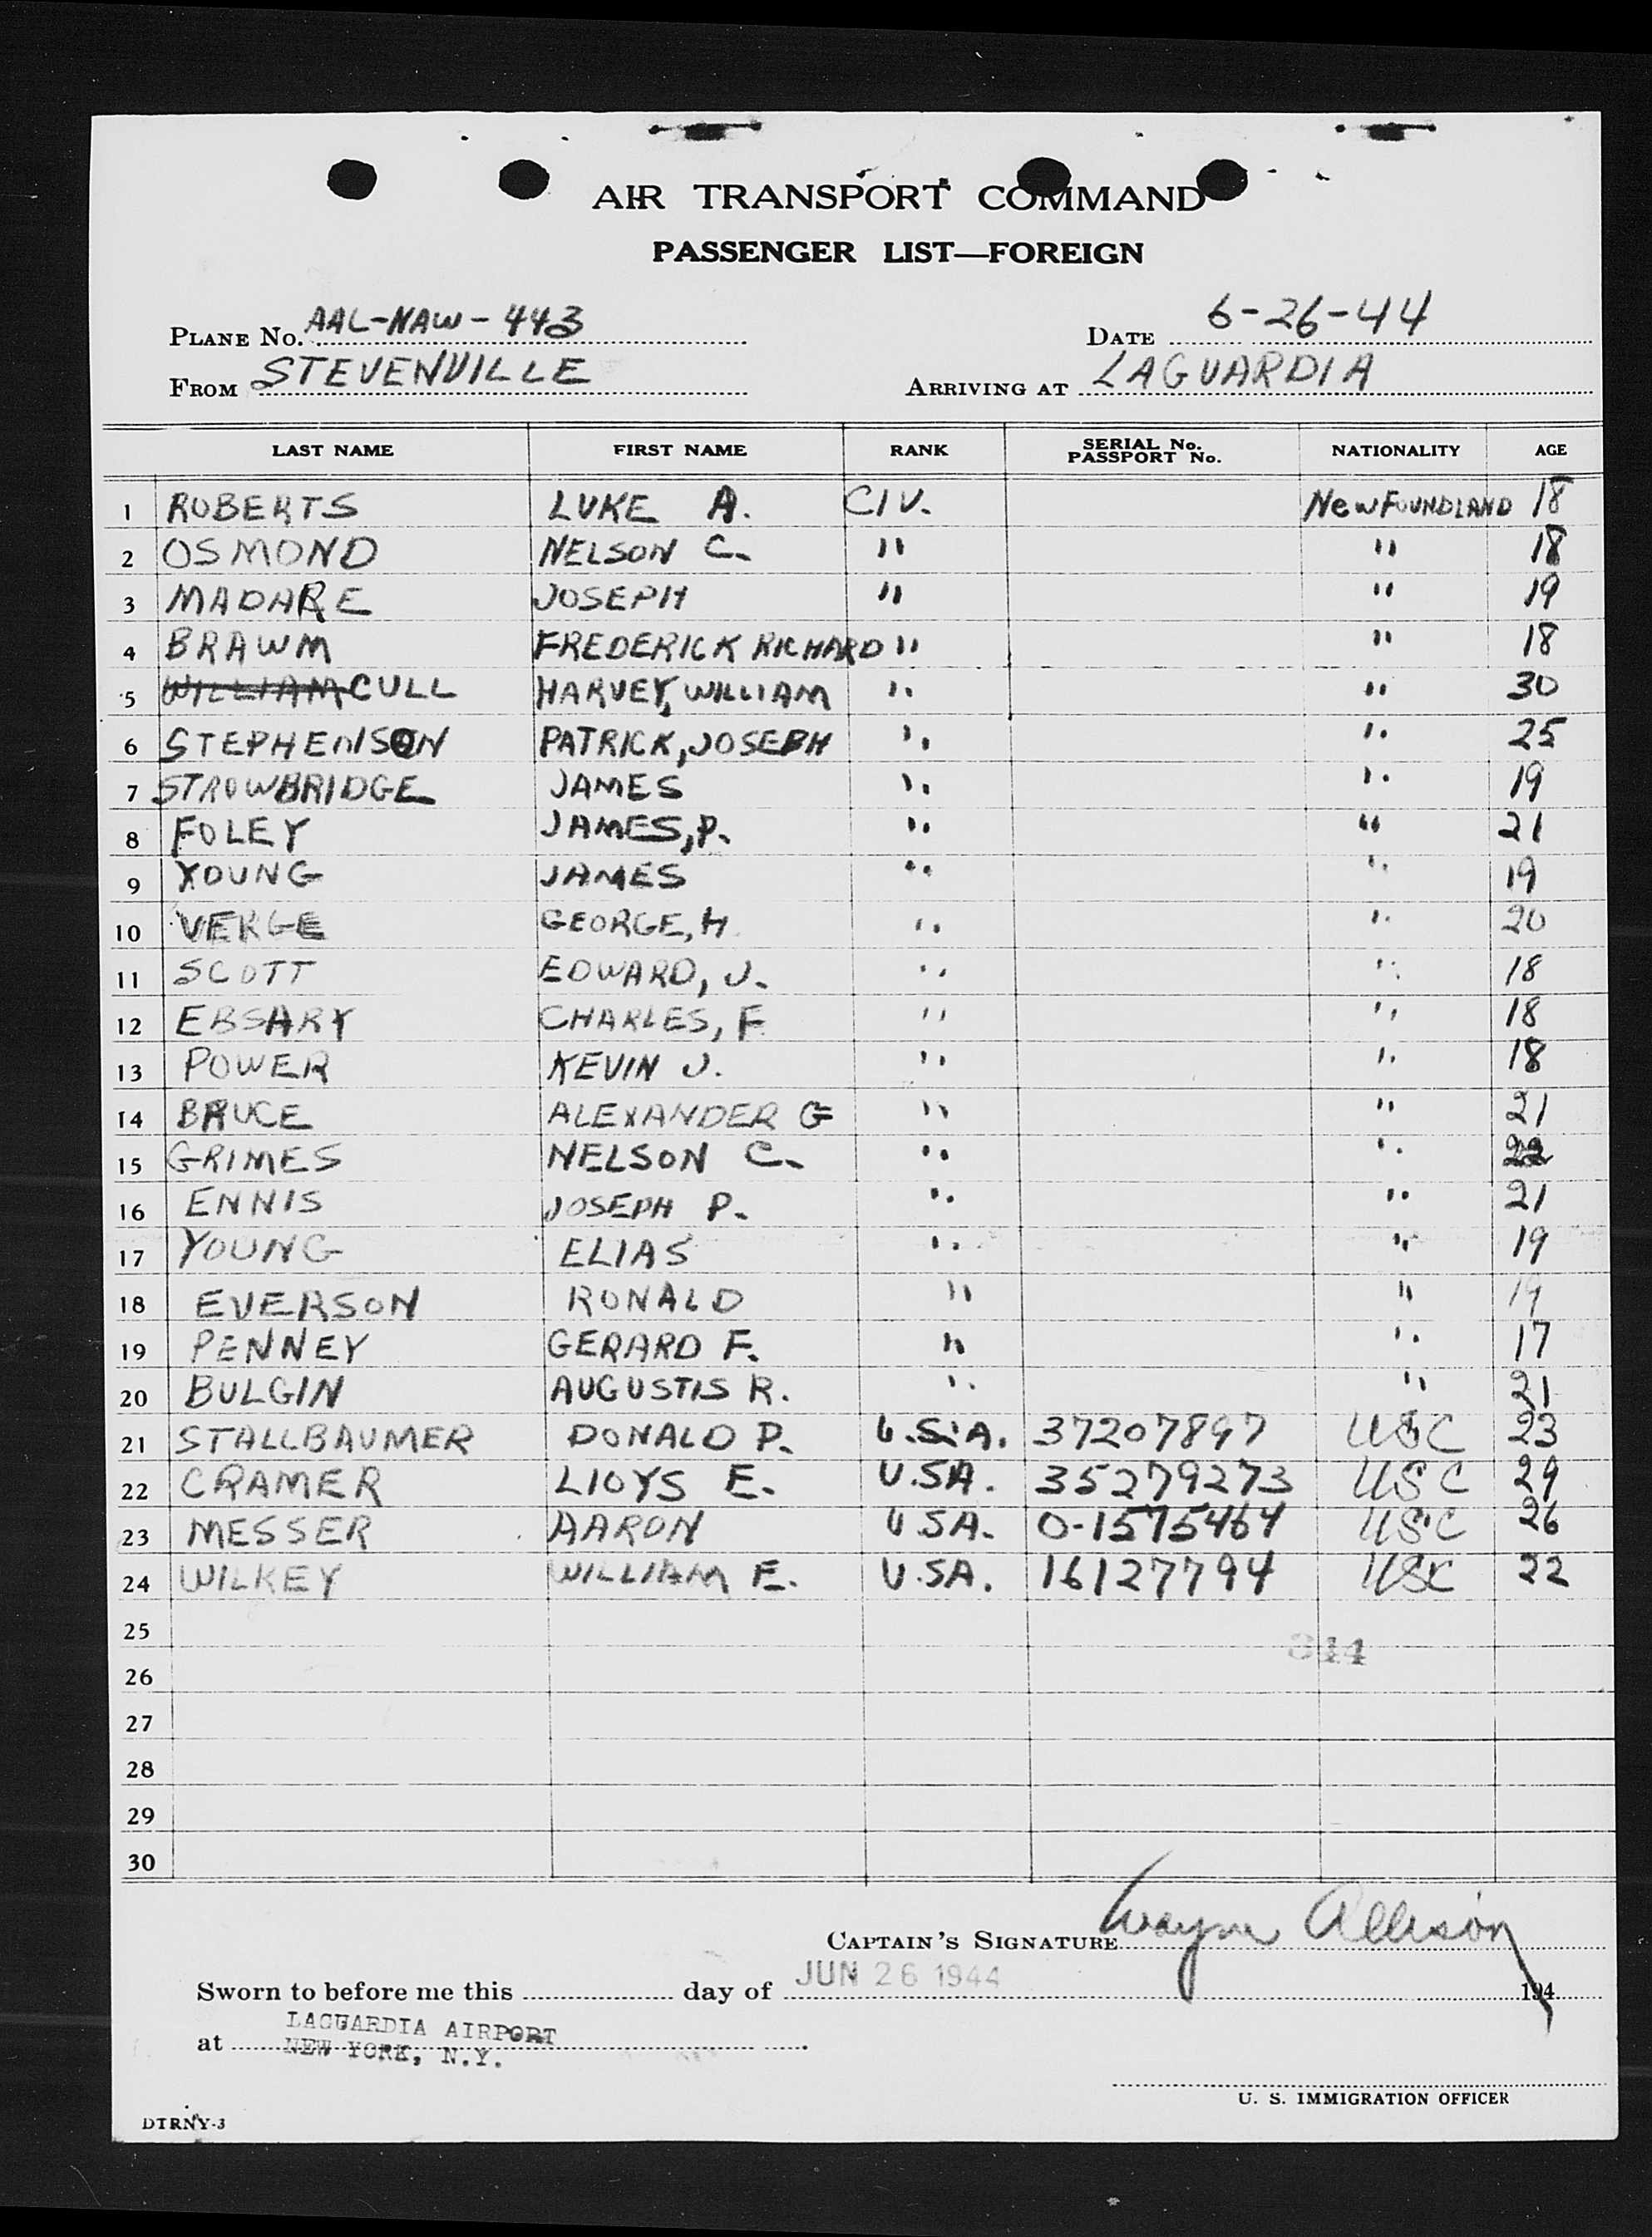 AIR TRANSPORT COMMAND
PASSENGER LIST—FOREIGN
PLANE No. AAL-NAW-443 DATE 6-26-44
FROM STEVENVILLE ARRIVING AT LAGUARDIA
LAST NAME FIRST NAME RANK SERIAL No. PASSPORT No. NATIONALITY AGE
1 ROBERTS LUKE A. CIV. NEWFOUNDLAND 18
2 OSMOND NELSON C. " " 18
3 MADARE JOSEPH " " 19
4 BRAWM FREDERICK RICHARD " " 18
5 WILLIAM CULL HARVEY, WILLIAM " " 30
6 STEPHENSON PATRICK, JOSEPH " " 25
7 STROWBRIDGE JAMES " " 19
8 FOLEY JAMES, P. " " 21
9 YOUNG JAMES " " 19
10 VERGE GEORGE, H. " " 20
11 SCOTT EDWARD, J. " " 18
12 EBSARY CHARLES, F " " 18
13 POWER KEVIN J. " " 18
14 BRUCE ALEXANDER G " " 21
15 GRIMES NELSON C. " " 22
16 ENNIS JOSEPH P. " " 21
17 YOUNG ELIAS " " 19
18 EVERSON RONALD " " 19
19 PENNEY GERARD F. " " 17
20 BULGIN AUGUSTIS R. " " 21
21 STALLBAUMER DONALD P. U.S.A. 37207897 USC 23
22 CRAMER LIOYS E. U.SA. 35279273 USC 29
23 MESSER AARON U SA. O-1575464 USC 26
24 WILKEY WILLIAM E. U.SA. 16127794 USC 22
25
344
26
27
28
29
30
CAPTAIN'S SIGNATURE Wayne Allison
Sworn to before me this day of JUN 26 1944 194
LAGUARDIA AIRPORT
at NEW YORK, N.Y.
U. S. IMMIGRATION OFFICER
DTRNY-3